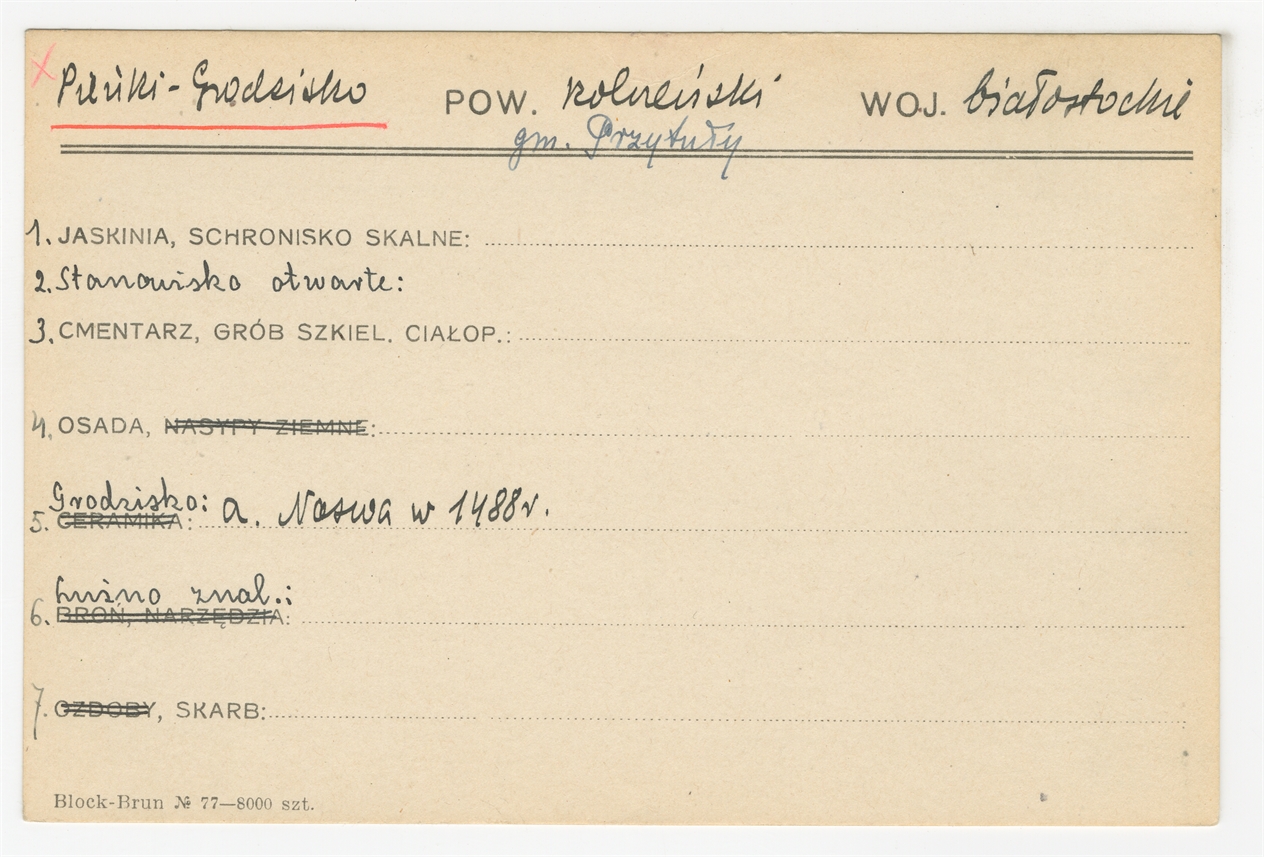 Pieńki-Grodzisko POW. kolneński WOJ. białostockie
gm. Przytuły
1. JASKINIA, SCHRONISKO SKALNE:
2. Stanowisko otwarte:
3. CMENTARZ, GRÓB SZKIEL. CIAŁOP.:
4. OSADA, NASYPY ZIEMNE:
Grodzisko: a. Nazwa w 1488 r.
5. CERAMIKA:
Luźno znal.:
6. BROŃ, NARZĘDZIA:
7. OZDOBY, SKARB:
Block-Brun № 77—8000 szt.